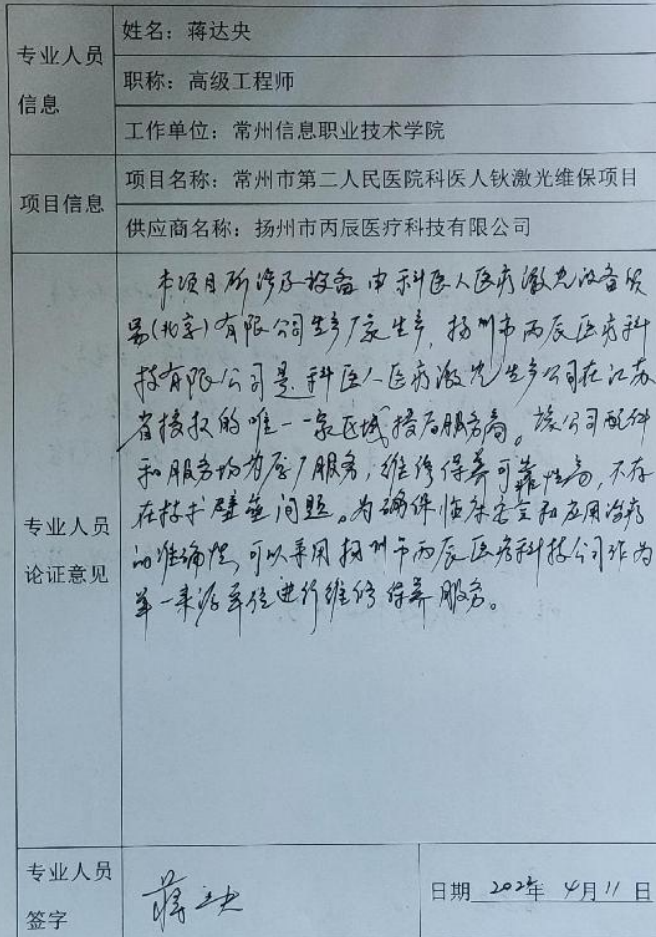 专业人员
信息
姓名：蒋达央
职称：高级工程师
工作单位：常州信息职业技术学院
项目信息
项目名称：常州市第二人民医院科医人钬激光维保项目
供应商名称：扬州市丙辰医疗科技有限公司
专业人员
论证意见
本项目所涉及设备由科医人医疗激光设备贸
易(北京)有限公司生产厂家生产，扬州市丙辰医疗科
技有限公司是科医人医疗激光生产公司在江苏
省授权的唯一一家区域授后服务商。该公司配件
和服务均为原厂服务，维修保养可靠性高，不存
在技术壁垒问题。为确保临床安全和应用治疗
的准确性，可以采用扬州市丙辰医疗科技公司作为
单一来源单位进行维修保养服务。
专业人员
签字
蒋达央
日期 年 4月11日